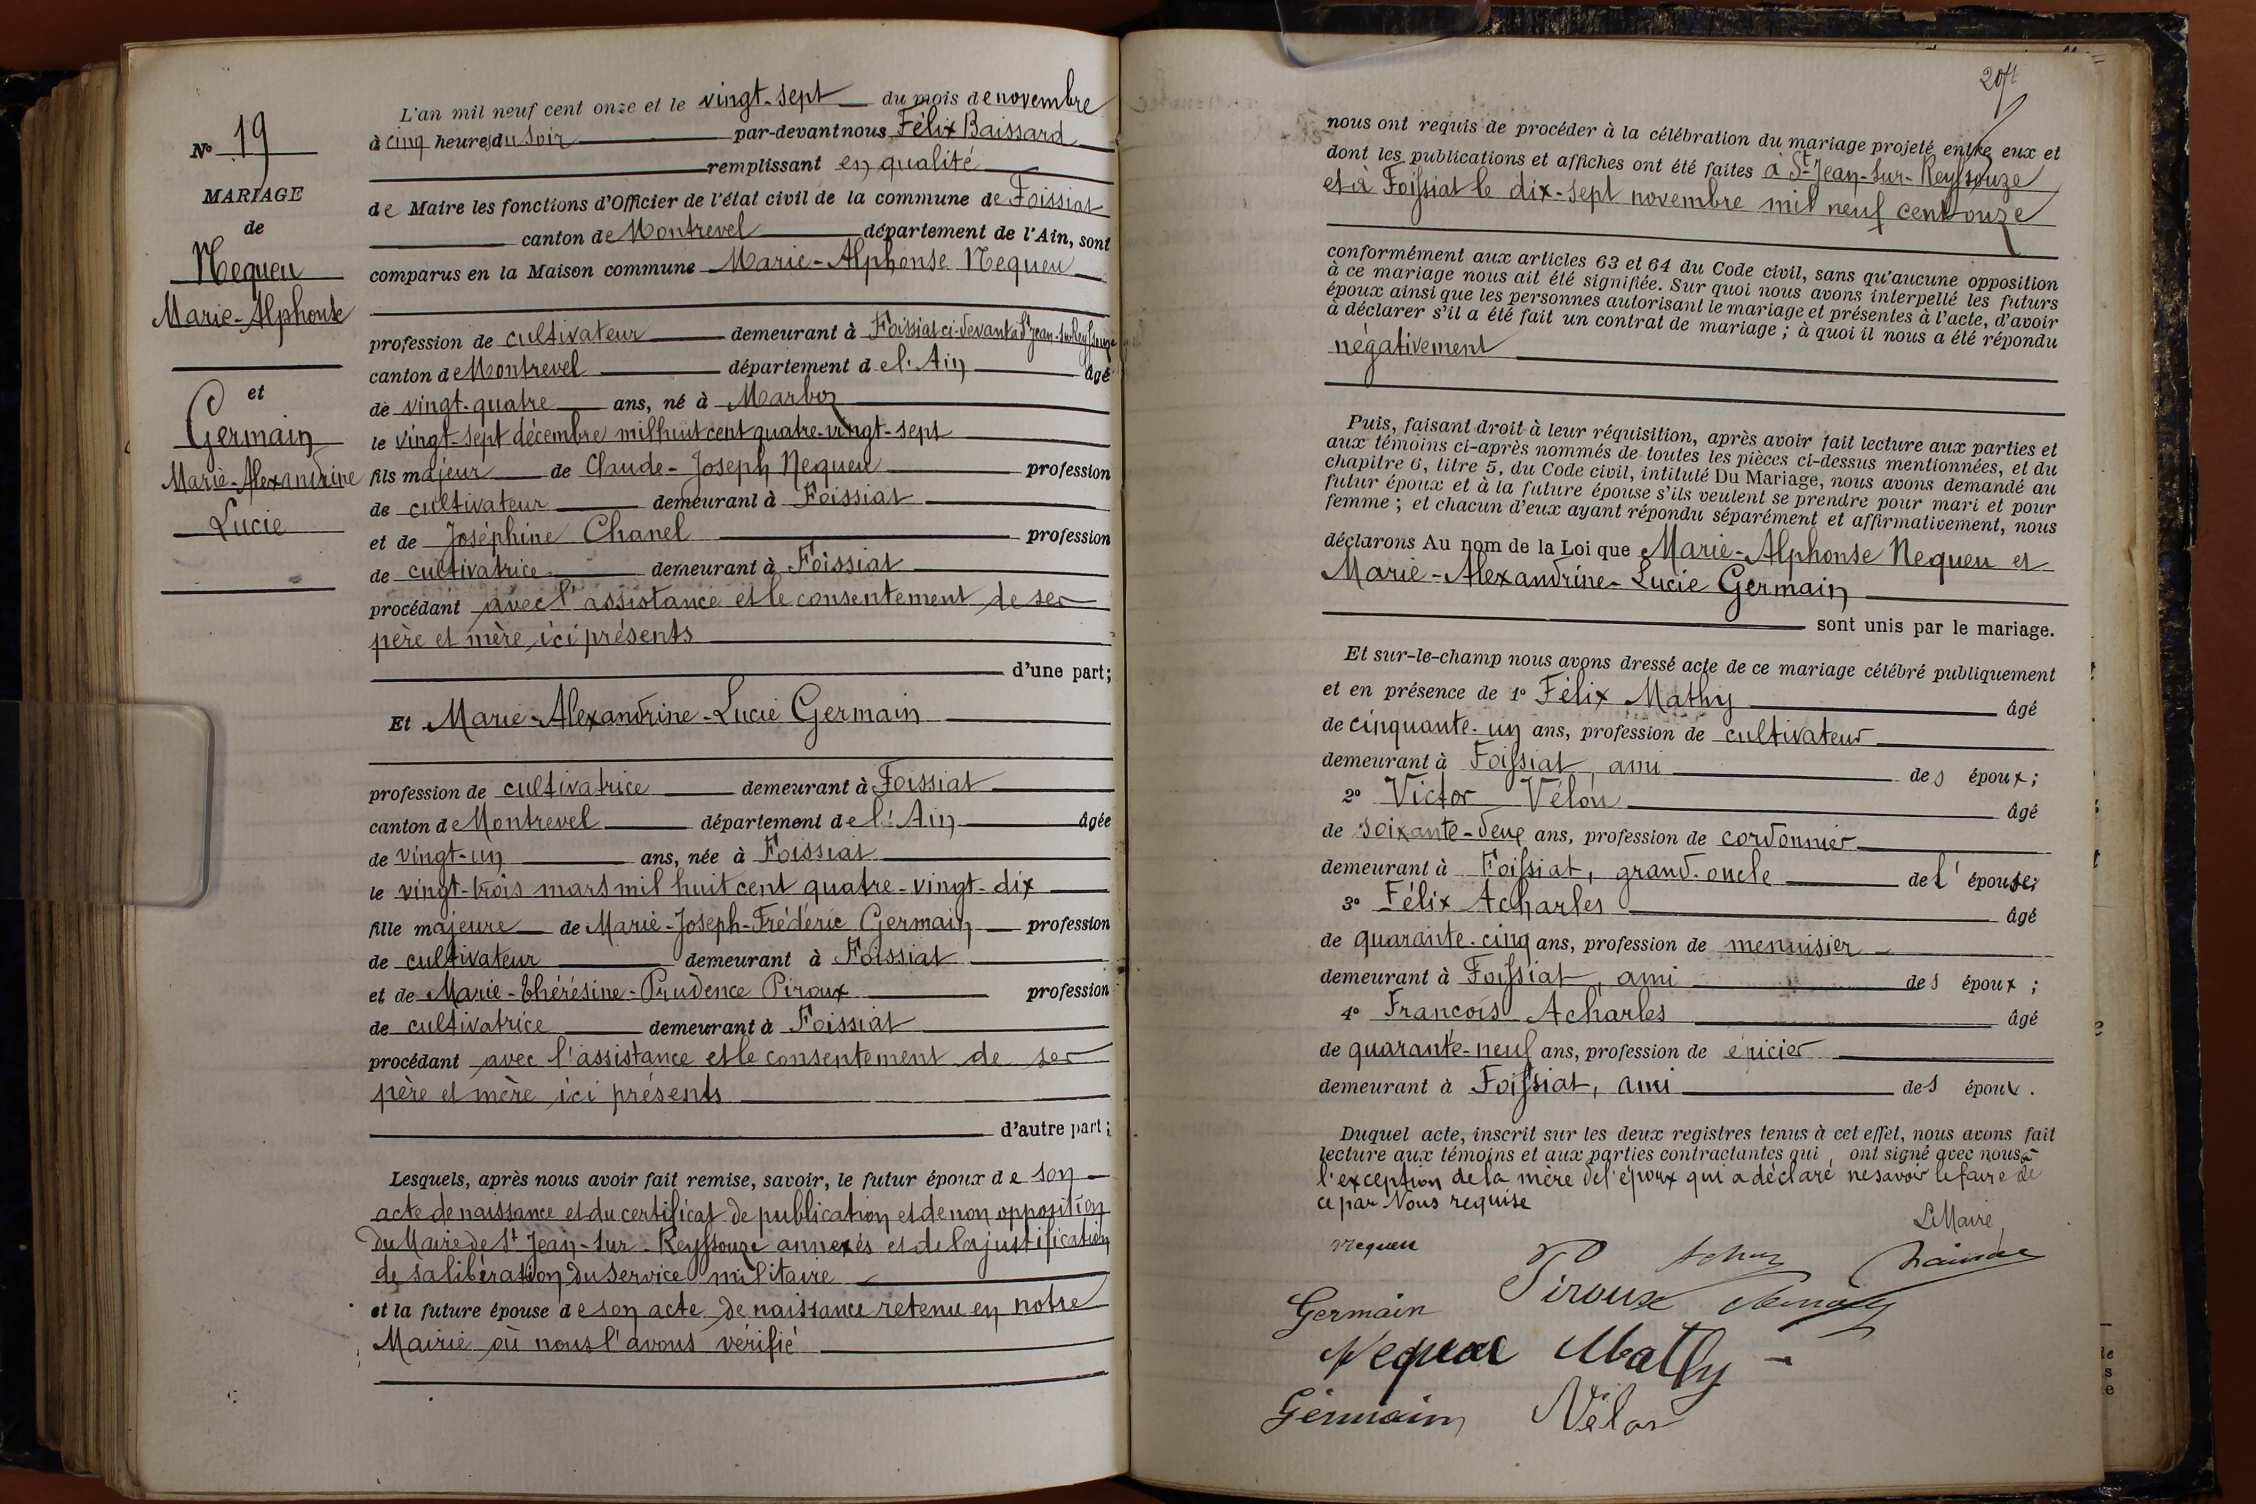 N° 19
MARIAGE
de
Nequeu
Marie-Alphonse
et
Germain
Marie-Alexandrine
Lucie
L'an mil neuf cent onze et le vingt-sept du mois de novembre
à cinq heures du soir par-devant nous Félix Baissard
remplissant en qualité
de Maire les fonctions d'Officier de l'état civil de la commune de Foissiat
canton de Montrevel département de l'Ain, sont
comparus en la Maison commune Marie-Alphonse Nequeu
profession de cultivateur demeurant à Foissiat ci-devant à St Jean-sur-Reyssouze
canton de Montrevel département de l'Ain âgé
de vingt-quatre ans, né à Marboz
le vingt-sept décembre mil huit cent quatre-vingt-sept
fils majeur de Claude-Joseph Nequeu profession
de cultivateur demeurant à Foissiat
et de Joséphine Chanel profession
de cultivatrice demeurant à Foissiat
procédant avec l'assistance et le consentement de ses
père et mère ici présents
d'une part;
Et Marie-Alexandrine-Lucie Germain
profession de cultivatrice demeurant à Foissiat
canton de Montrevel département de l'Ain âgée
de vingt-un ans, née à Foissiat
le vingt-trois mars mil huit cent quatre-vingt-dix
fille majeure de Marie-Joseph-Frédéric Germain profession
de cultivateur demeurant à Foissiat
et de Marie-Thérésine-Prudence Piroux profession
de cultivatrice demeurant à Foissiat
procédant avec l'assistance et le consentement de ses
père et mère ici présents
d'autre part;
Lesquels, après nous avoir fait remise, savoir, le futur époux de son
acte de naissance et du certificat de publication et de non opposition
du Maire de St Jean-sur-Reyssouze annexés et de la justification
de sa libération du service militaire
et la future épouse de son acte de naissance retenu en notre
Mairie où nous l'avons vérifié
nous ont requis de procéder à la célébration du mariage projeté entre eux et
dont les publications et affiches ont été faites à St-Jean-sur-Reyssouze
et à Foissiat le dix-sept novembre mil neuf cent onze
conformément aux articles 63 et 64 du Code civil, sans qu'aucune opposition
à ce mariage nous ait été signifiée. Sur quoi nous avons interpellé les futurs
époux ainsi que les personnes autorisant le mariage et présentes à l'acte, d'avoir
à déclarer s'il a été fait un contrat de mariage; à quoi il nous a été répondu
négativement
Puis, faisant droit à leur réquisition, après avoir fait lecture aux parties et
aux témoins ci-après nommés de toutes les pièces ci-dessus mentionnées, et du
chapitre 6, titre 5, du Code civil, intitulé Du Mariage, nous avons demandé au
futur époux et à la future épouse s'ils veulent se prendre pour mari et pour
femme; et chacun d'eux ayant répondu séparément et affirmativement, nous
déclarons Au nom de la Loi que Marie-Alphonse Nequeu et
Marie-Alexandrine-Lucie Germain
sont unis par le mariage.
Et sur-le-champ nous avons dressé acte de ce mariage célébré publiquement
et en présence de 1° Félix Mathy âgé
de cinquante-un ans, profession de cultivateur
demeurant à Foissiat, ami des époux;
2° Victor Vélon âgé
de soixante-deux ans, profession de cordonnier
demeurant à Foissiat, grand-oncle de l'épouse;
3° Félix Acharles âgé
de quarante-cinq ans, profession de menuisier
demeurant à Foissiat, ami des époux;
4° François Acharles âgé
de quarante-neuf ans, profession de épicier
demeurant à Foissiat, ami des époux.
Duquel acte, inscrit sur les deux registres tenus à cet effet, nous avons fait
lecture aux témoins et aux parties contractantes qui ont signé avec nous à
l'exception de la mère de l'époux qui a déclaré ne savoir le faire de
ce par Nous requise
Le Maire
Nequeu
Piroux
Germain
Nequeu Mathy
Germain Vélon